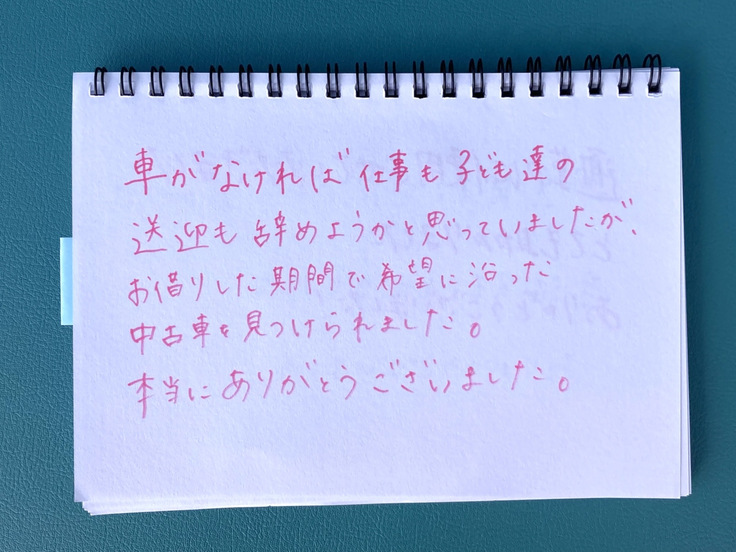 車がなければ仕事も子ども達の
送迎も辞めようかと思っていましたが、
お借りした期間で希望に沿った
中古車を見つけられました。
本当にありがとうございました。